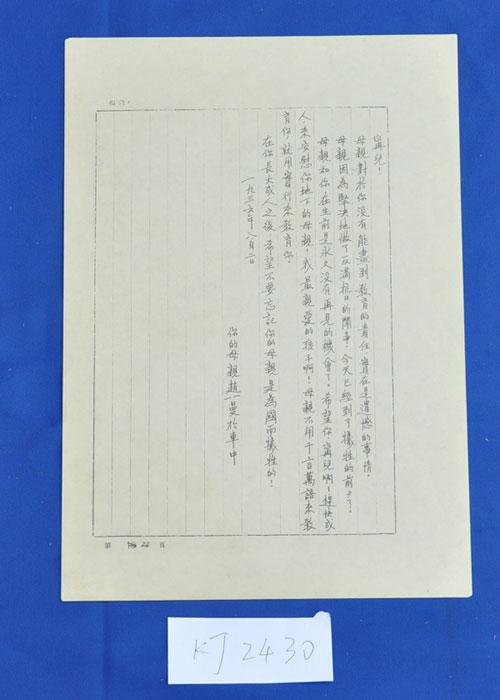 寗兒！
母親對於你沒有能盡到教育的責任，實在是遺憾的事情。
母親因為堅決地做了反滿抗日的鬥爭，今天已經到了犧牲的前夕了。
母親和你在生前是永久沒有再見的機會了。希望你，寗兒啊！趕快成
人，來安慰你地下的母親！我最親愛的孩子啊！母親不用千言萬語來教
育你，就用實行來教育你。
在你長大成人之後，希望不要忘記你的母親是為國而犧牲的！
一九三六年八月二日
你的母親趙一曼於車中
第 頁
KJ 2430